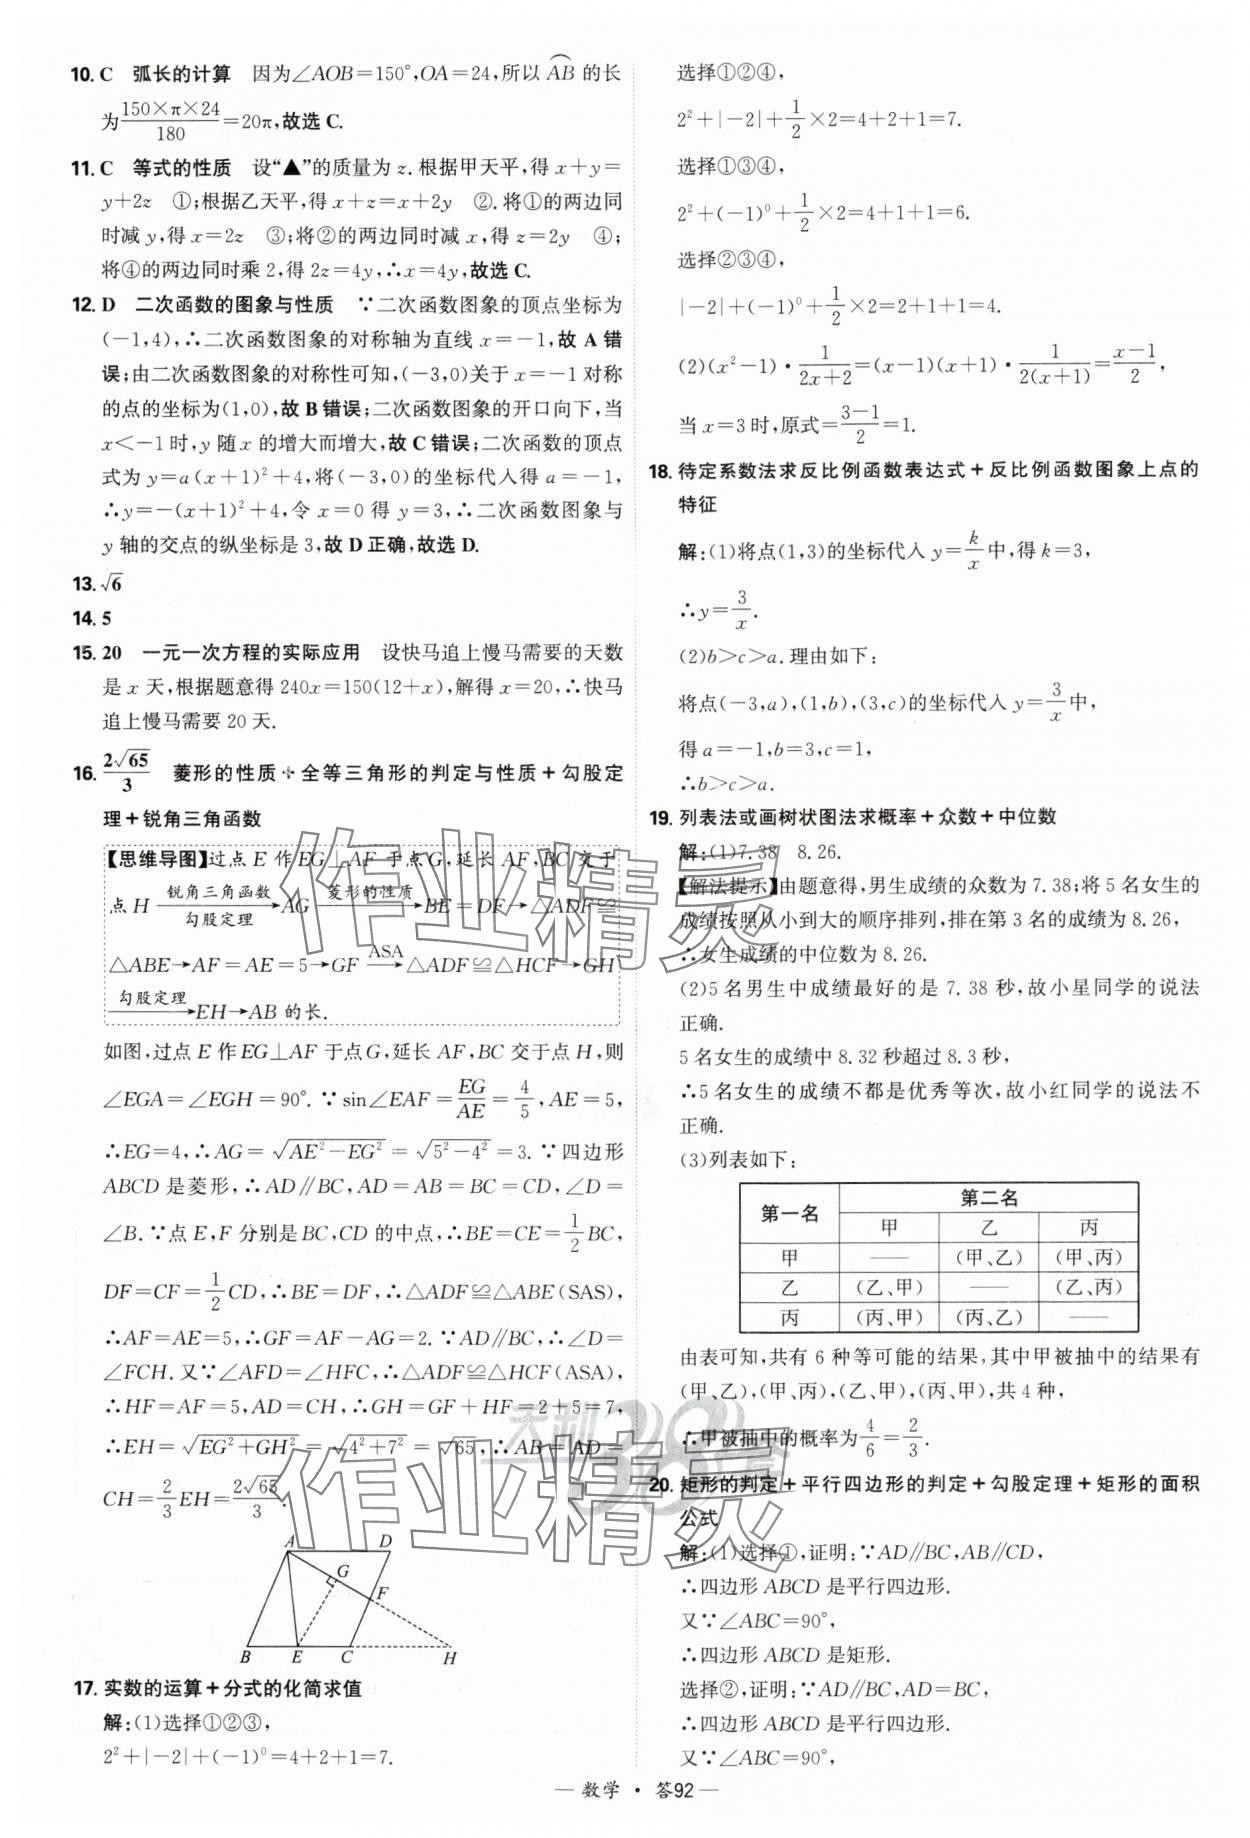 10. C 弧长的计算 因为∠AOB=150°,OA=24,所以 AB⌒ 的长
为(150×π×24)/180=20π,故选 C.
11. C 等式的性质 设“▲”的质量为 z. 根据甲天平,得 x+y=
y+2z ①;根据乙天平,得 x+z=x+2y ②. 将①的两边同
时减 y,得 x=2z ③;将②的两边同时减 x,得 z=2y ④;
将④的两边同时乘 2,得 2z=4y,∴x=4y,故选 C.
12. D 二次函数的图象与性质 ∵二次函数图象的顶点坐标为
(−1,4),∴二次函数图象的对称轴为直线 x=−1,故 A 错
误;由二次函数图象的对称性可知,(−3,0)关于 x=−1 对称
的点的坐标为(1,0),故 B 错误;二次函数图象的开口向下,当
x<−1 时,y 随 x 的增大而增大,故 C 错误;二次函数的顶点
式为 y=a(x+1)²+4,将(−3,0)的坐标代入得 a=−1,
∴y=−(x+1)²+4,令 x=0 得 y=3,∴二次函数图象与
y 轴的交点的纵坐标是 3,故 D 正确,故选 D.
13. √6
14. 5
15. 20 一元一次方程的实际应用 设快马追上慢马需要的天数
是 x 天,根据题意得 240x=150(12+x),解得 x=20,∴快马
追上慢马需要 20 天.
16. 2√65/3 菱形的性质+全等三角形的判定与性质+勾股定
理+锐角三角函数
【思维导图】过点 E 作 EG⊥AF 于点 G,延长 AF,BC 交于
点 H 锐角三角函数 勾股定理→AG 菱形的性质→BE=DF→△ADF≌
△ABE→AF=AE=5→GF ASA→△ADF≌△HCF→GH
勾股定理→EH→AB 的长.
如图,过点 E 作 EG⊥AF 于点 G,延长 AF,BC 交于点 H,则
∠EGA=∠EGH=90°. ∵sin∠EAF=EG/AE=4/5,AE=5,
∴EG=4,∴AG=√(AE²−EG²)=√(5²−4²)=3. ∵四边形
ABCD 是菱形,∴AD∥BC,AD=AB=BC=CD,∠D=
∠B. ∵点 E,F 分别是 BC,CD 的中点,∴BE=CE=1/2BC,
DF=CF=1/2CD,∴BE=DF,∴△ADF≌△ABE(SAS),
∴AF=AE=5,∴GF=AF−AG=2. ∵AD∥BC,∴∠D=
∠FCH. 又∵∠AFD=∠HFC,∴△ADF≌△HCF(ASA),
∴HF=AF=5,AD=CH,∴GH=GF+HF=2+5=7,
∴EH=√(EG²+GH²)=√(4²+7²)=√65,∴AB=AD=
CH=2/3EH=2√65/3.
A D
G
F
B E C H
17. 实数的运算+分式的化简求值
解:(1)选择①②③,
2²+|−2|+(−1)⁰=4+2+1=7.
选择①②④,
2²+|−2|+1/2×2=4+2+1=7.
选择①③④,
2²+(−1)⁰+1/2×2=4+1+1=6.
选择②③④,
|−2|+(−1)⁰+1/2×2=2+1+1=4.
(2)(x²−1)·1/(2x+2)=(x−1)(x+1)·1/(2(x+1))=(x−1)/2,
当 x=3 时,原式=(3−1)/2=1.
18. 待定系数法求反比例函数表达式+反比例函数图象上点的
特征
解:(1)将点(1,3)的坐标代入 y=k/x中,得 k=3,
∴y=3/x.
(2)b>c>a. 理由如下:
将点(−3,a),(1,b),(3,c)的坐标代入 y=3/x中,
得 a=−1,b=3,c=1,
∴b>c>a.
19. 列表法或画树状图法求概率+众数+中位数
解:(1)7.38 8.26.
【解法提示】由题意得,男生成绩的众数为 7.38;将 5 名女生的
成绩按照从小到大的顺序排列,排在第 3 名的成绩为 8.26,
∴女生成绩的中位数为 8.26.
(2)5 名男生中成绩最好的是 7.38 秒,故小星同学的说法
正确.
5 名女生的成绩中 8.32 秒超过 8.3 秒,
∴5 名女生的成绩不都是优秀等次,故小红同学的说法不
正确.
(3)列表如下:
第一名 第二名
甲 乙 丙
甲 —— (甲、乙) (甲、丙)
乙 (乙、甲) —— (乙、丙)
丙 (丙、甲) (丙、乙) ——
由表可知,共有 6 种等可能的结果,其中甲被抽中的结果有
(甲、乙),(甲、丙),(乙、甲),(丙、甲),共 4 种,
∴甲被抽中的概率为4/6=2/3.
20. 矩形的判定+平行四边形的判定+勾股定理+矩形的面积
公式
解:(1)选择①,证明:∵AD∥BC,AB∥CD,
∴四边形 ABCD 是平行四边形.
又∵∠ABC=90°,
∴四边形 ABCD 是矩形.
选择②,证明:∵AD∥BC,AD=BC,
∴四边形 ABCD 是平行四边形.
又∵∠ABC=90°,
— 数学 · 答92 —
作业精灵
天利38套
作业精灵